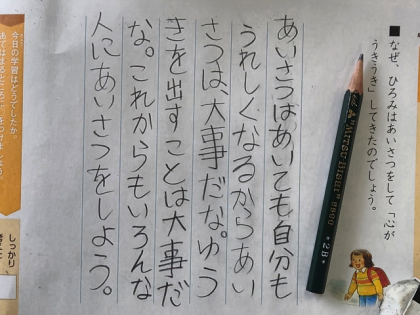 ■ なぜ、ひろみはあいさつをして「心が
うきうき」してきたのでしょう。
"MITSU-BISHI" 9800 *2B*
あいさつはあいても自分も
うれしくなるからあい
さつは、大事だな。ゆう
きを出すことは大事だ
な。これからもいろんな
人にあいさつをしよう。
今日の学習はどうでしたか。
しっかり